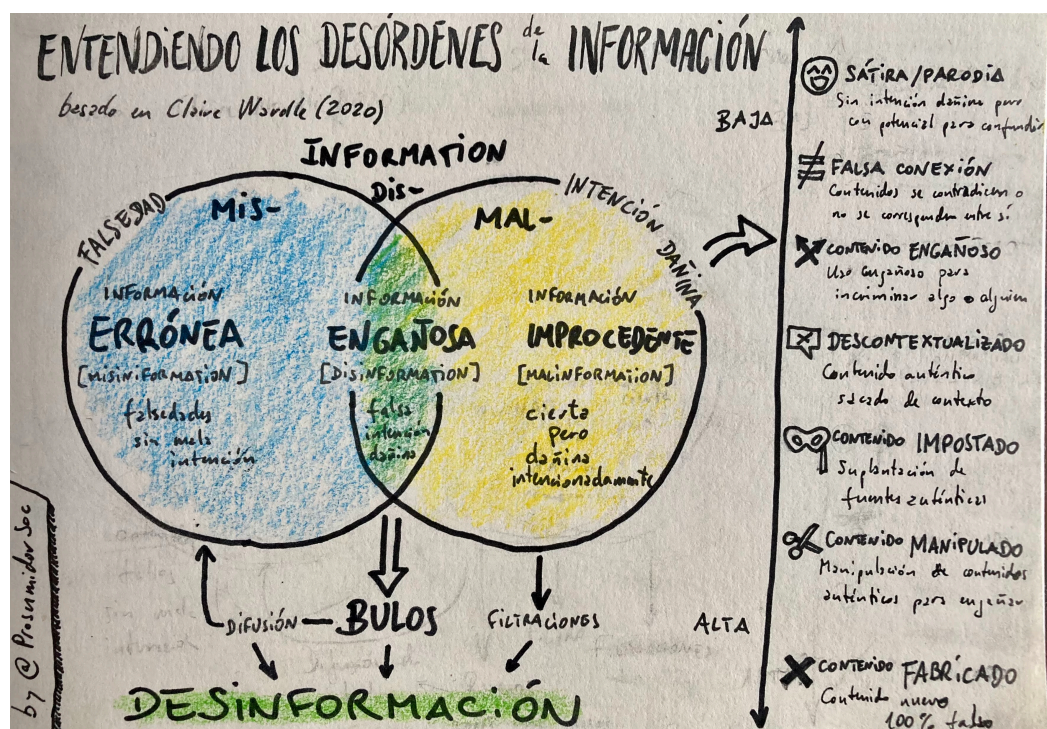 ENTENDIENDO LOS DESÓRDENES de la INFORMACIÓN
basado en Claire Wardle (2020)
INFORMATION
FALSEDAD
MIS-
DIS-
MAL-
INTENCIÓN DAÑINA
INFORMACIÓN
ERRÓNEA
[MISINFORMATION]
falsedades
sin mala
intención
INFORMACIÓN
ENGAÑOSA
[DISINFORMATION]
falsa
intención
dañina
INFORMACIÓN
IMPROCEDENTE
[MALINFORMATION]
cierta
pero
dañina
intencionadamente
DIFUSIÓN
BULOS
FILTRACIONES
DESINFORMACIÓN
BAJA
ALTA
SÁTIRA/PARODIA
Sin intención dañina pero
con potencial para confundir
FALSA CONEXIÓN
Contenidos se contradicen o
no se corresponden entre sí
CONTENIDO ENGAÑOSO
Uso engañoso para
incriminar algo o alguien
DESCONTEXTUALIZADO
Contenido auténtico
sacado de contexto
CONTENIDO IMPOSTADO
Suplantación de
fuentes auténticas
CONTENIDO MANIPULADO
Manipulación de contenidos
auténticos para engañar
CONTENIDO FABRICADO
Contenido nuevo
100% falso
by @ProsumidorSoc